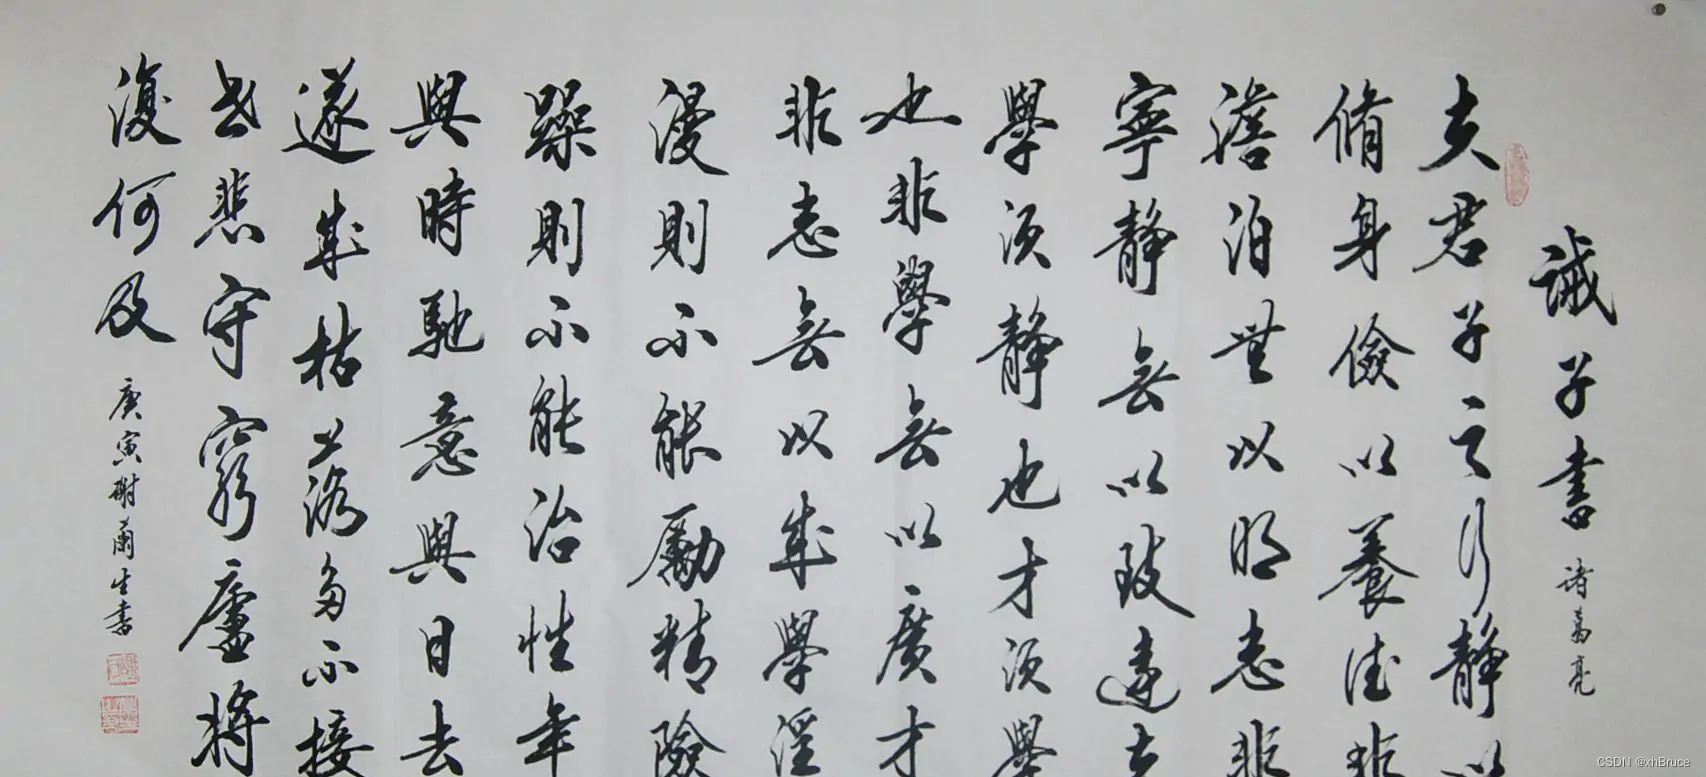 誡子書 诸葛亮
夫君子之行静以
脩身儉以養德非
澹泊無以明志非
寧静無以致遠夫
學須静也才須學
也非學無以廣才
非志無以成學淫
漫則不能勵精險
躁則不能治性年
與時馳意與日去
遂成枯落多不接
世悲守窮廬將
復何及 庚寅謝蘭生書
CSDN @xhBruce